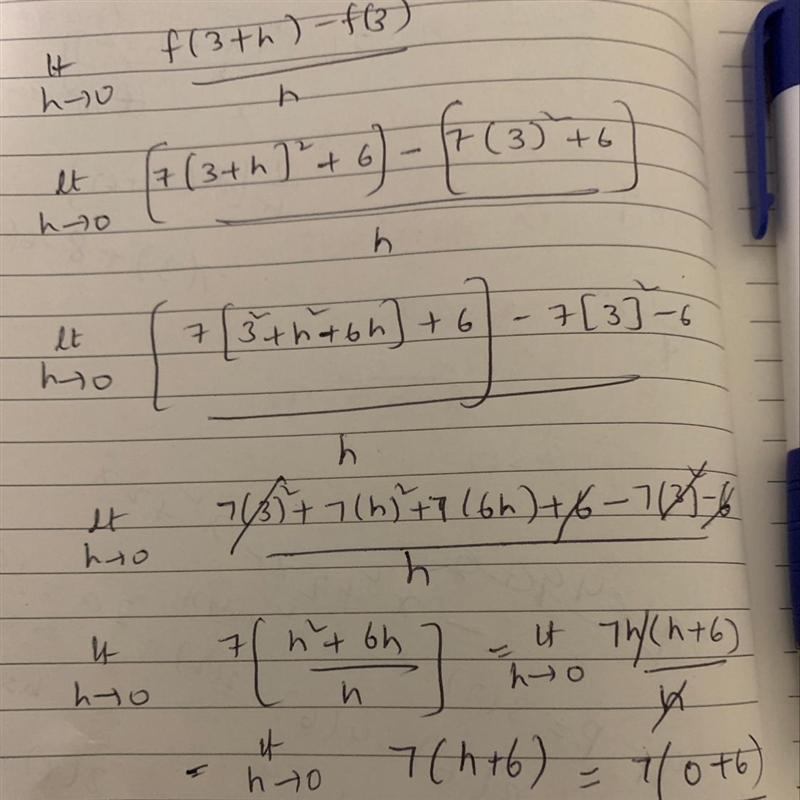 lt h→0 f(3+h) - f(3) / h
lt h→0 [7(3+h]² + 6] - [7(3)² + 6] / h
lt h→0 [7[3² + h² + 6h] + 6] - 7[3]² - 6 / h
lt h→0 7(3)² + 7(h)² + 7(6h) + 6 - 7(3)² - 6 / h
lt h→0 7[h² + 6h / h] = lt h→0 7h(h+6) / h
= lt h→0 7(h+6) = 7(0+6)